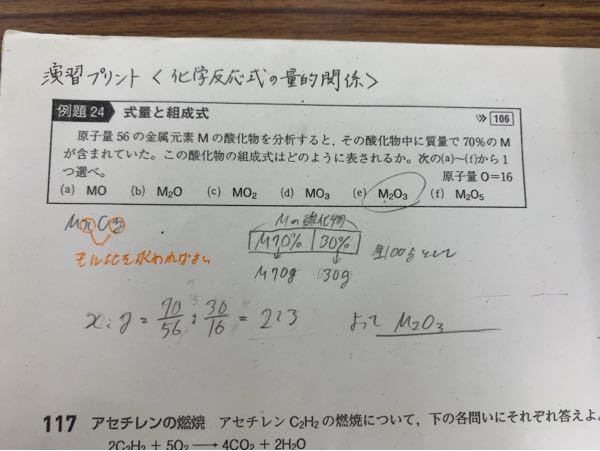 演習プリント＜化学反応式の量的関係＞
例題24 式量と組成式 106
原子量56の金属元素Mの酸化物を分析すると，その酸化物中に質量で70%のM
が含まれていた。この酸化物の組成式はどのように表されるか。次の(a)〜(f)から1
つ選べ。 原子量 O=16
(a) MO (b) M₂O (c) MO₂ (d) MO₃ (e) M₂O₃ (f) M₂O₅
Mの酸化物
M70% 30%
M70g 30g
全100gとして
モル比を求めればよい
x:y = 70/56 : 30/16 = 2:3 よって M₂O₃
117 アセチレンの燃焼 アセチレンC₂H₂の燃焼について，下の各問いにそれぞれ答えよ
2C₂H₂ + 5O₂ ⟶ 4CO₂ + 2H₂O